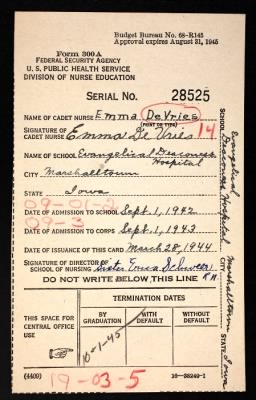 Budget Bureau No. 68-R145
Approval expires August 31, 1945
Form 300A
FEDERAL SECURITY AGENCY
U. S. PUBLIC HEALTH SERVICE
DIVISION OF NURSE EDUCATION
SERIAL NO. 28525
NAME OF CADET NURSE Emma DeVries
(PRINT OR TYPE)
SIGNATURE OF CADET NURSE Emma De Vries 14
NAME OF SCHOOL Evangelical Deaconess Hospital
CITY Marshalltown
STATE Iowa
09-01-2
09-3
DATE OF ADMISSION TO SCHOOL Sept. 1, 1942
DATE OF ADMISSION TO CORPS Sept. 1, 1943
DATE OF ISSUANCE OF THIS CARD March 28, 1944
SIGNATURE OF DIRECTOR OF SCHOOL OF NURSING Sister R.N.
DO NOT WRITE BELOW THIS LINE
THIS SPACE FOR CENTRAL OFFICE USE
TERMINATION DATES
BY GRADUATION
WITH DEFAULT
WITHOUT DEFAULT
10-1-45
(4400)
19-03-5
16-38249-1
SCHOOL Evangelical Deaconess Hospital CITY Marshalltown STATE Iowa